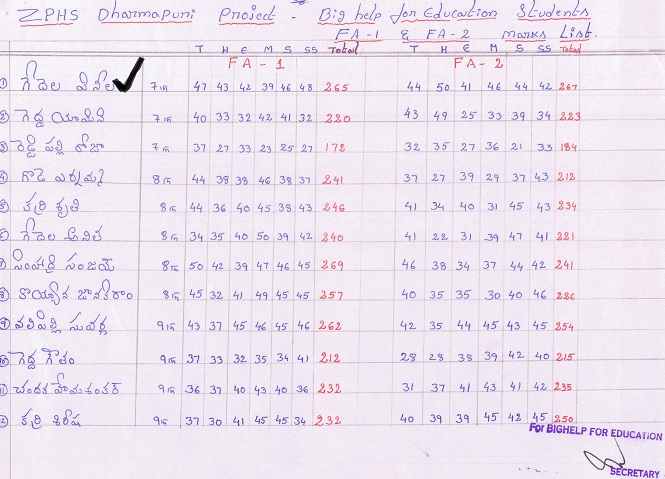 ZPHS Dharmapuri Project - Big help for Education Students
FA-1 & FA-2 marks List.
T H E M S SS Total T H E M S SS Total
FA - 1 FA - 2
① గేదెల వినీల 7th 47 43 42 39 46 48 265 44 50 41 46 44 42 267
② గెడ్డ యామిని 7th 40 33 32 42 41 32 220 43 49 25 33 39 34 223
③ రెడ్డి పల్లి రోజా 7th 37 27 33 23 25 27 172 32 35 27 36 21 33 184
④ గొడె ఎర్నమ్మ 8th 44 38 38 46 38 37 241 37 27 39 29 37 43 212
⑤ కర్రి శృతి 8th 44 36 40 45 38 43 246 41 34 40 31 45 43 234
⑥ గేదెల అనిత 8th 34 35 40 50 39 42 240 41 22 31 39 47 41 221
⑦ సింహాద్రి సంజయ్ 8th 50 42 39 47 46 45 269 46 38 34 37 44 42 241
⑧ జానకిరాం 8th 45 32 41 49 45 45 257 40 35 35 30 40 46 226
⑨ సువర్ణ 9th 43 37 45 46 45 46 262 42 35 44 45 43 45 254
⑩ గెడ్డ గౌతం 9th 37 33 32 35 34 41 212 28 28 38 39 42 40 215
⑪ 9th 36 37 40 43 40 36 232 31 37 41 43 41 42 235
⑫ కర్రి శిరీష 9th 37 30 41 45 45 34 232 40 39 39 45 42 45 250
For BIGHELP FOR EDUCATION
SECRETARY